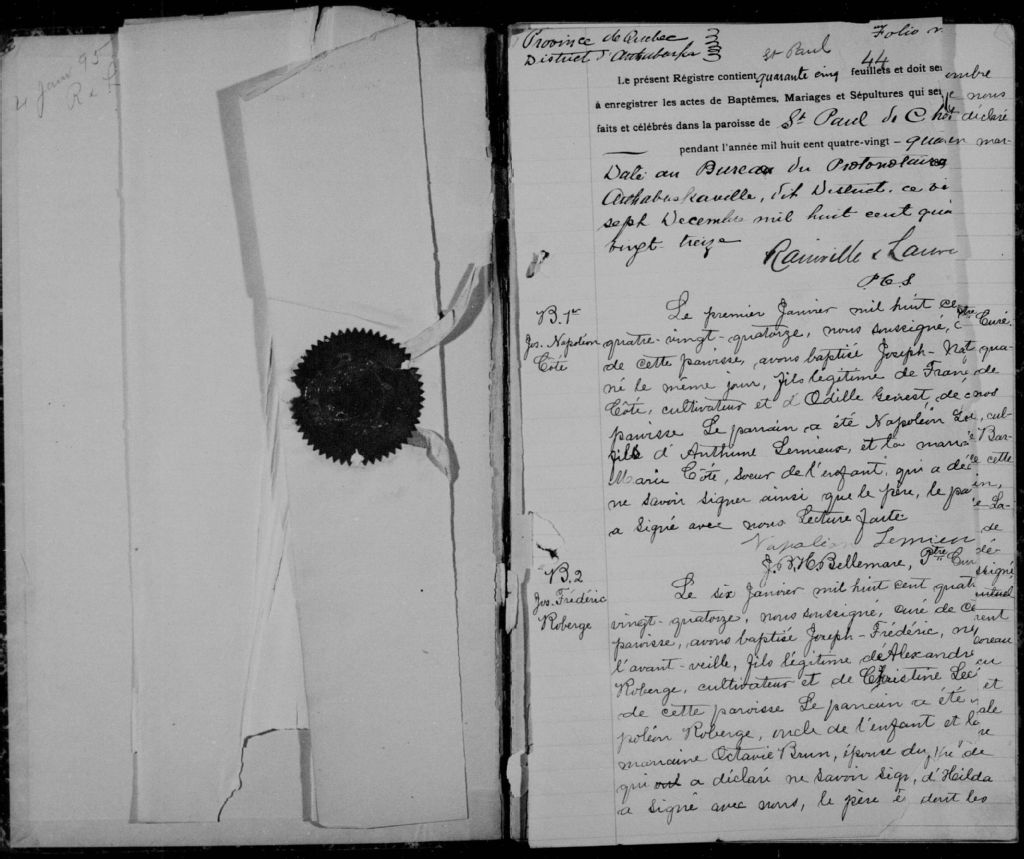 4 Janv 95
R & L
Province de Québec
District d'Arthabaska
St Paul
Folio
44
Le présent Régistre contient quarante cinq feuillets et doit ser
à enregistrer les actes de Baptêmes, Mariages et Sépultures qui se
faits et célébrés dans la paroisse de St Paul de Ch
pendant l'année mil huit cent quatre-vingt - qua
Daté au Bureau du Protonotaire
Arthabaskaville, dit District, ce
sept Decembre mil huit cent qua
vingt treize
Rainville & Laur
P.C.S
ombre
nous
déclaré
mar-
B. 1er
Jos. Napoléon
Côté
Le premier Janvier mil huit ce
quatre-vingt-quatorze, nous soussigné,
de cette paroisse, avons baptisé Joseph-Na
né le même jour, fils légitime de Fran
Côté, cultivateur et d'Odille Genest, de c
paroisse Le parrain a été Napoléon Le
fils d'Anthime Lemieux, et la marra
Marie Côté, soeur de l'enfant, qui a déc
ne savoir signer ainsi que le père, le pa
a signé avec nous Lecture faite
Napoléon Lemieu
J. B. H. Bellemare, Ptre Cur
Curé.
qua-
de
nos
cul-
Bar-
cette
in,
e-La-
de
B. 2
Jos. Frédéric
Roberge
Le six Janvier mil huit cent quat
vingt-quatorze, nous soussigné, curé de ce
paroisse, avons baptisé Joseph-Frédéric, né
l'avant-veille, fils légitime d'Alexandre
Roberge, cultivateur et de Christine Le
de cette paroisse Le parrain a été
poléon Roberge, oncle de l'enfant et la
marraine Octavie Brun, épouse du
qui a déclaré ne savoir sig
a signé avec nous, le père
ssigné,
rent
et
de
d'Hilda
dont les